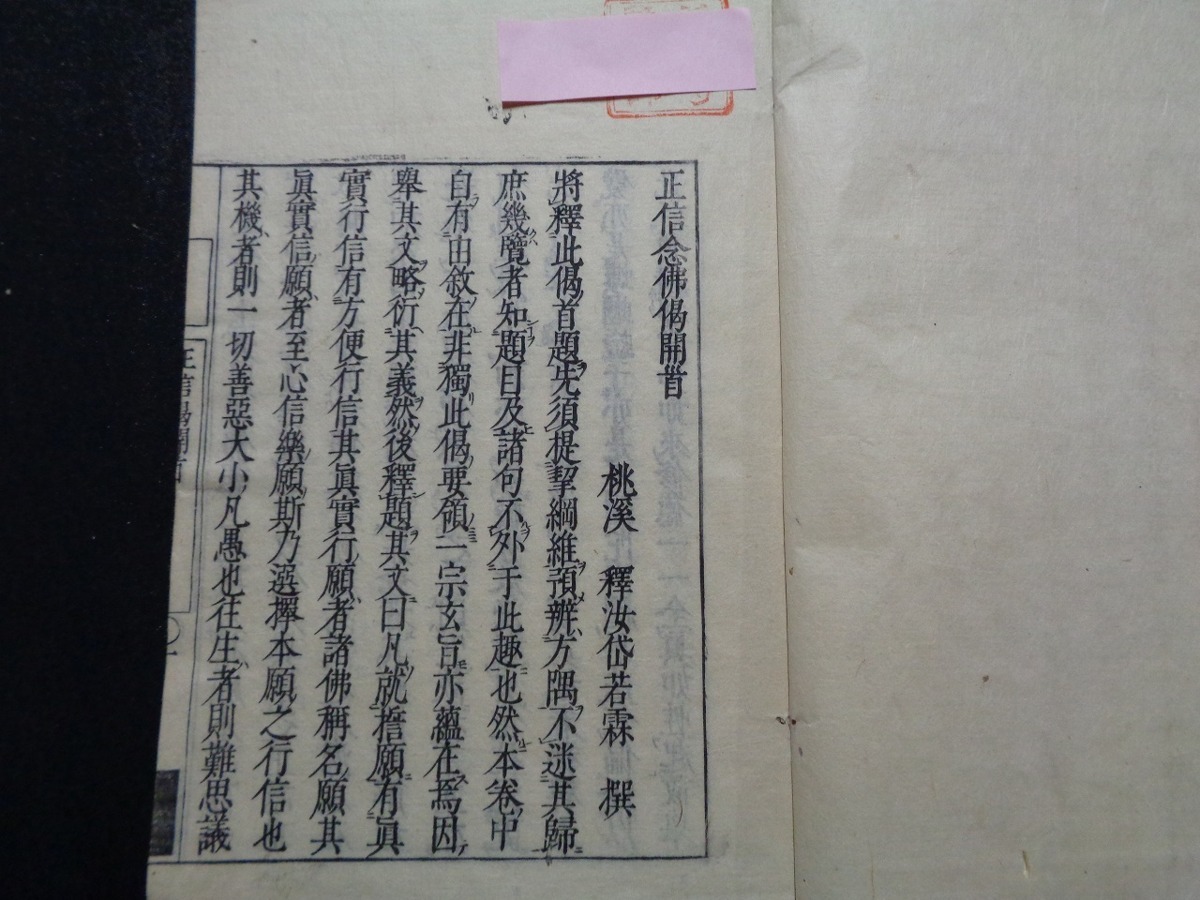 正信念佛偈開首
桃溪 釋汝岱若霖 撰
將釋此偈首題先須提挈綱維預辨方隅不迷其歸
庶幾覽者知題目及諸句不外于此趣也然本卷中
自有由敘在非獨此偈要領一宗玄旨亦蘊在焉因
舉其文略衍其義然後釋題其文曰凡就誓願有眞
實行信有方便行信其眞實行願者諸佛稱名願其
眞實信願者至心信樂願斯乃選擇本願之行信也
其機者則一切善惡大小凡愚也往生者則難思議
正信偈開首